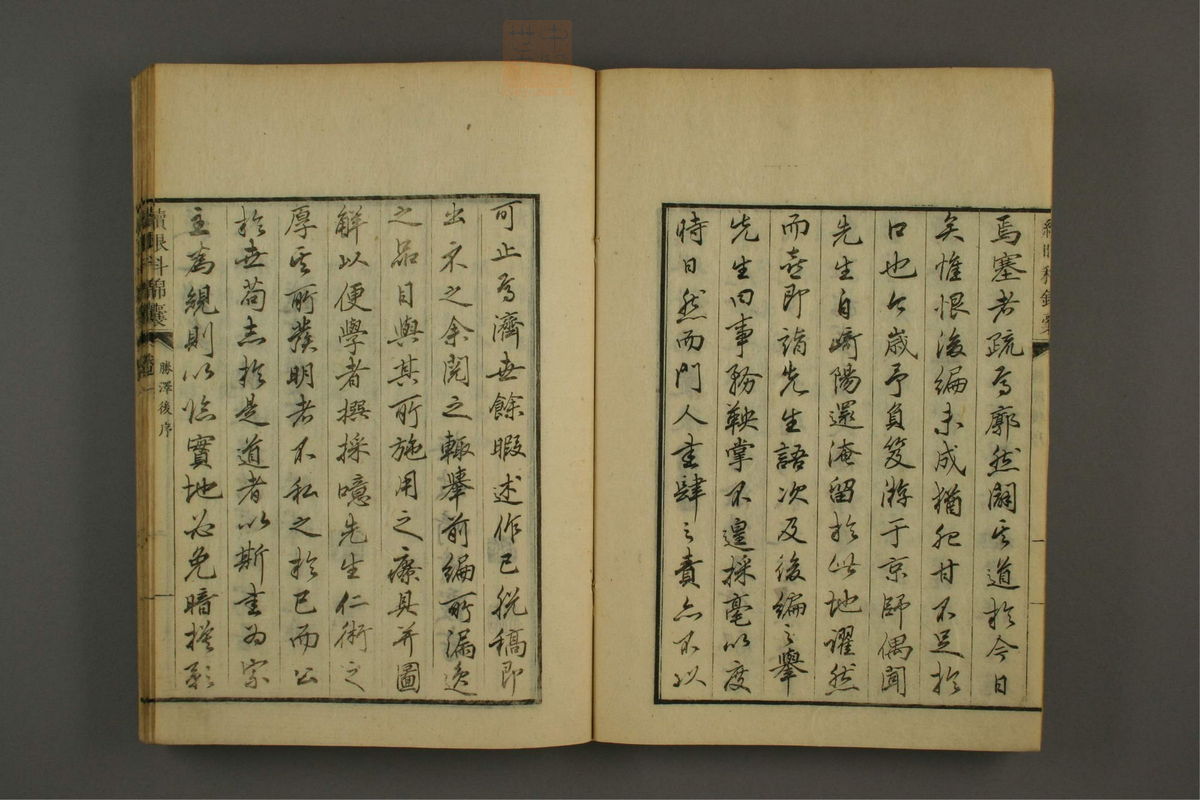 焉塞者疏焉廓然闢其道於今日
矣惟恨後編未成猶肥甘不足於
口也今歲予負笈游于京師偶聞
先生自﨑陽還淹留於此地躍然
而喜即謁先生語次及後編之舉
先生曰事務鞅掌不遑採毫以度
時日然而門人書肆之責亦不以
可止焉濟世餘暇述作已脫稿即
出示之余閱之輙舉前編所漏逸
之品目與其所施用之療具并圖
解以便學者撰採噫先生仁術之
厚其所發明者不私之於己而公
於世苟志於是道者以斯書為宗
主為規則以臨實地必免暗捼影
續眼科錦囊
卷一
勝澤後序